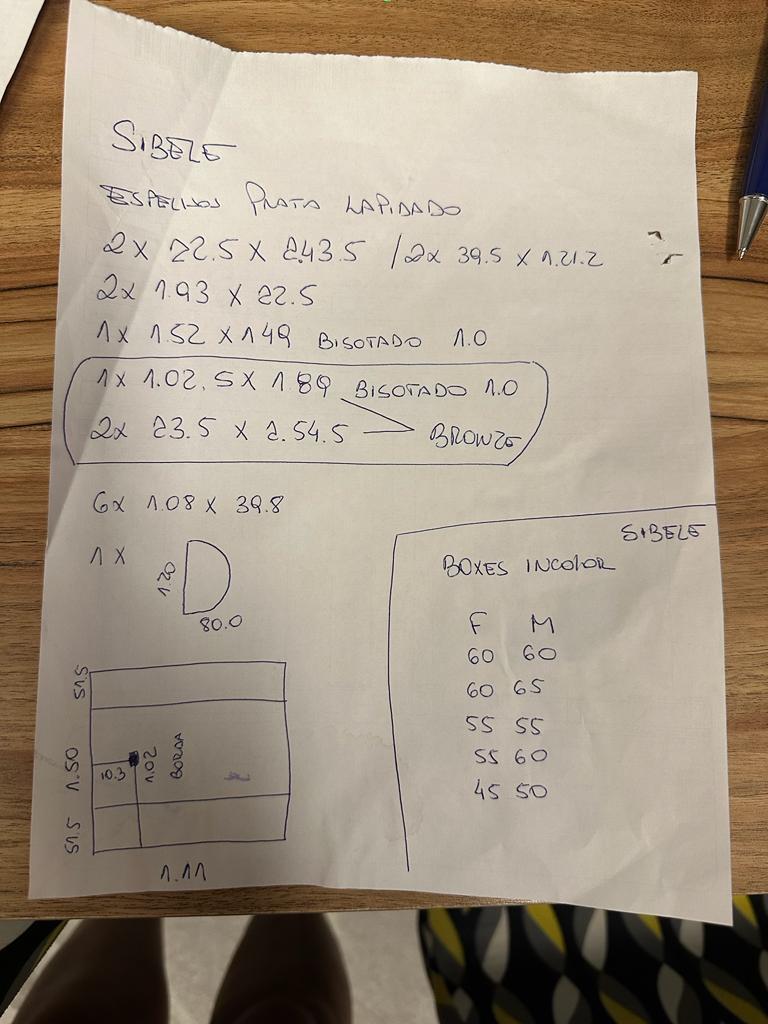 SIBELE
ESPELHOS PRATA LAPIDADO
2x 22.5 x 2.43.5 / 2x 39.5 x 1.21.2
2x 1.93 x 22.5
1x 1.52 x 149 BISOTADO 1.0
1x 1.02.5 x 1.89 BISOTADO 1.0
2x 23.5 x 2.54.5 BRONZE
6x 1.08 x 39.8
1x
1.20
80.0
51.5
1.50
1.02
BORDA
51.5
1.11
SIBELE
BOXES INCOLOR
F M
60 60
60 65
55 55
55 60
45 50